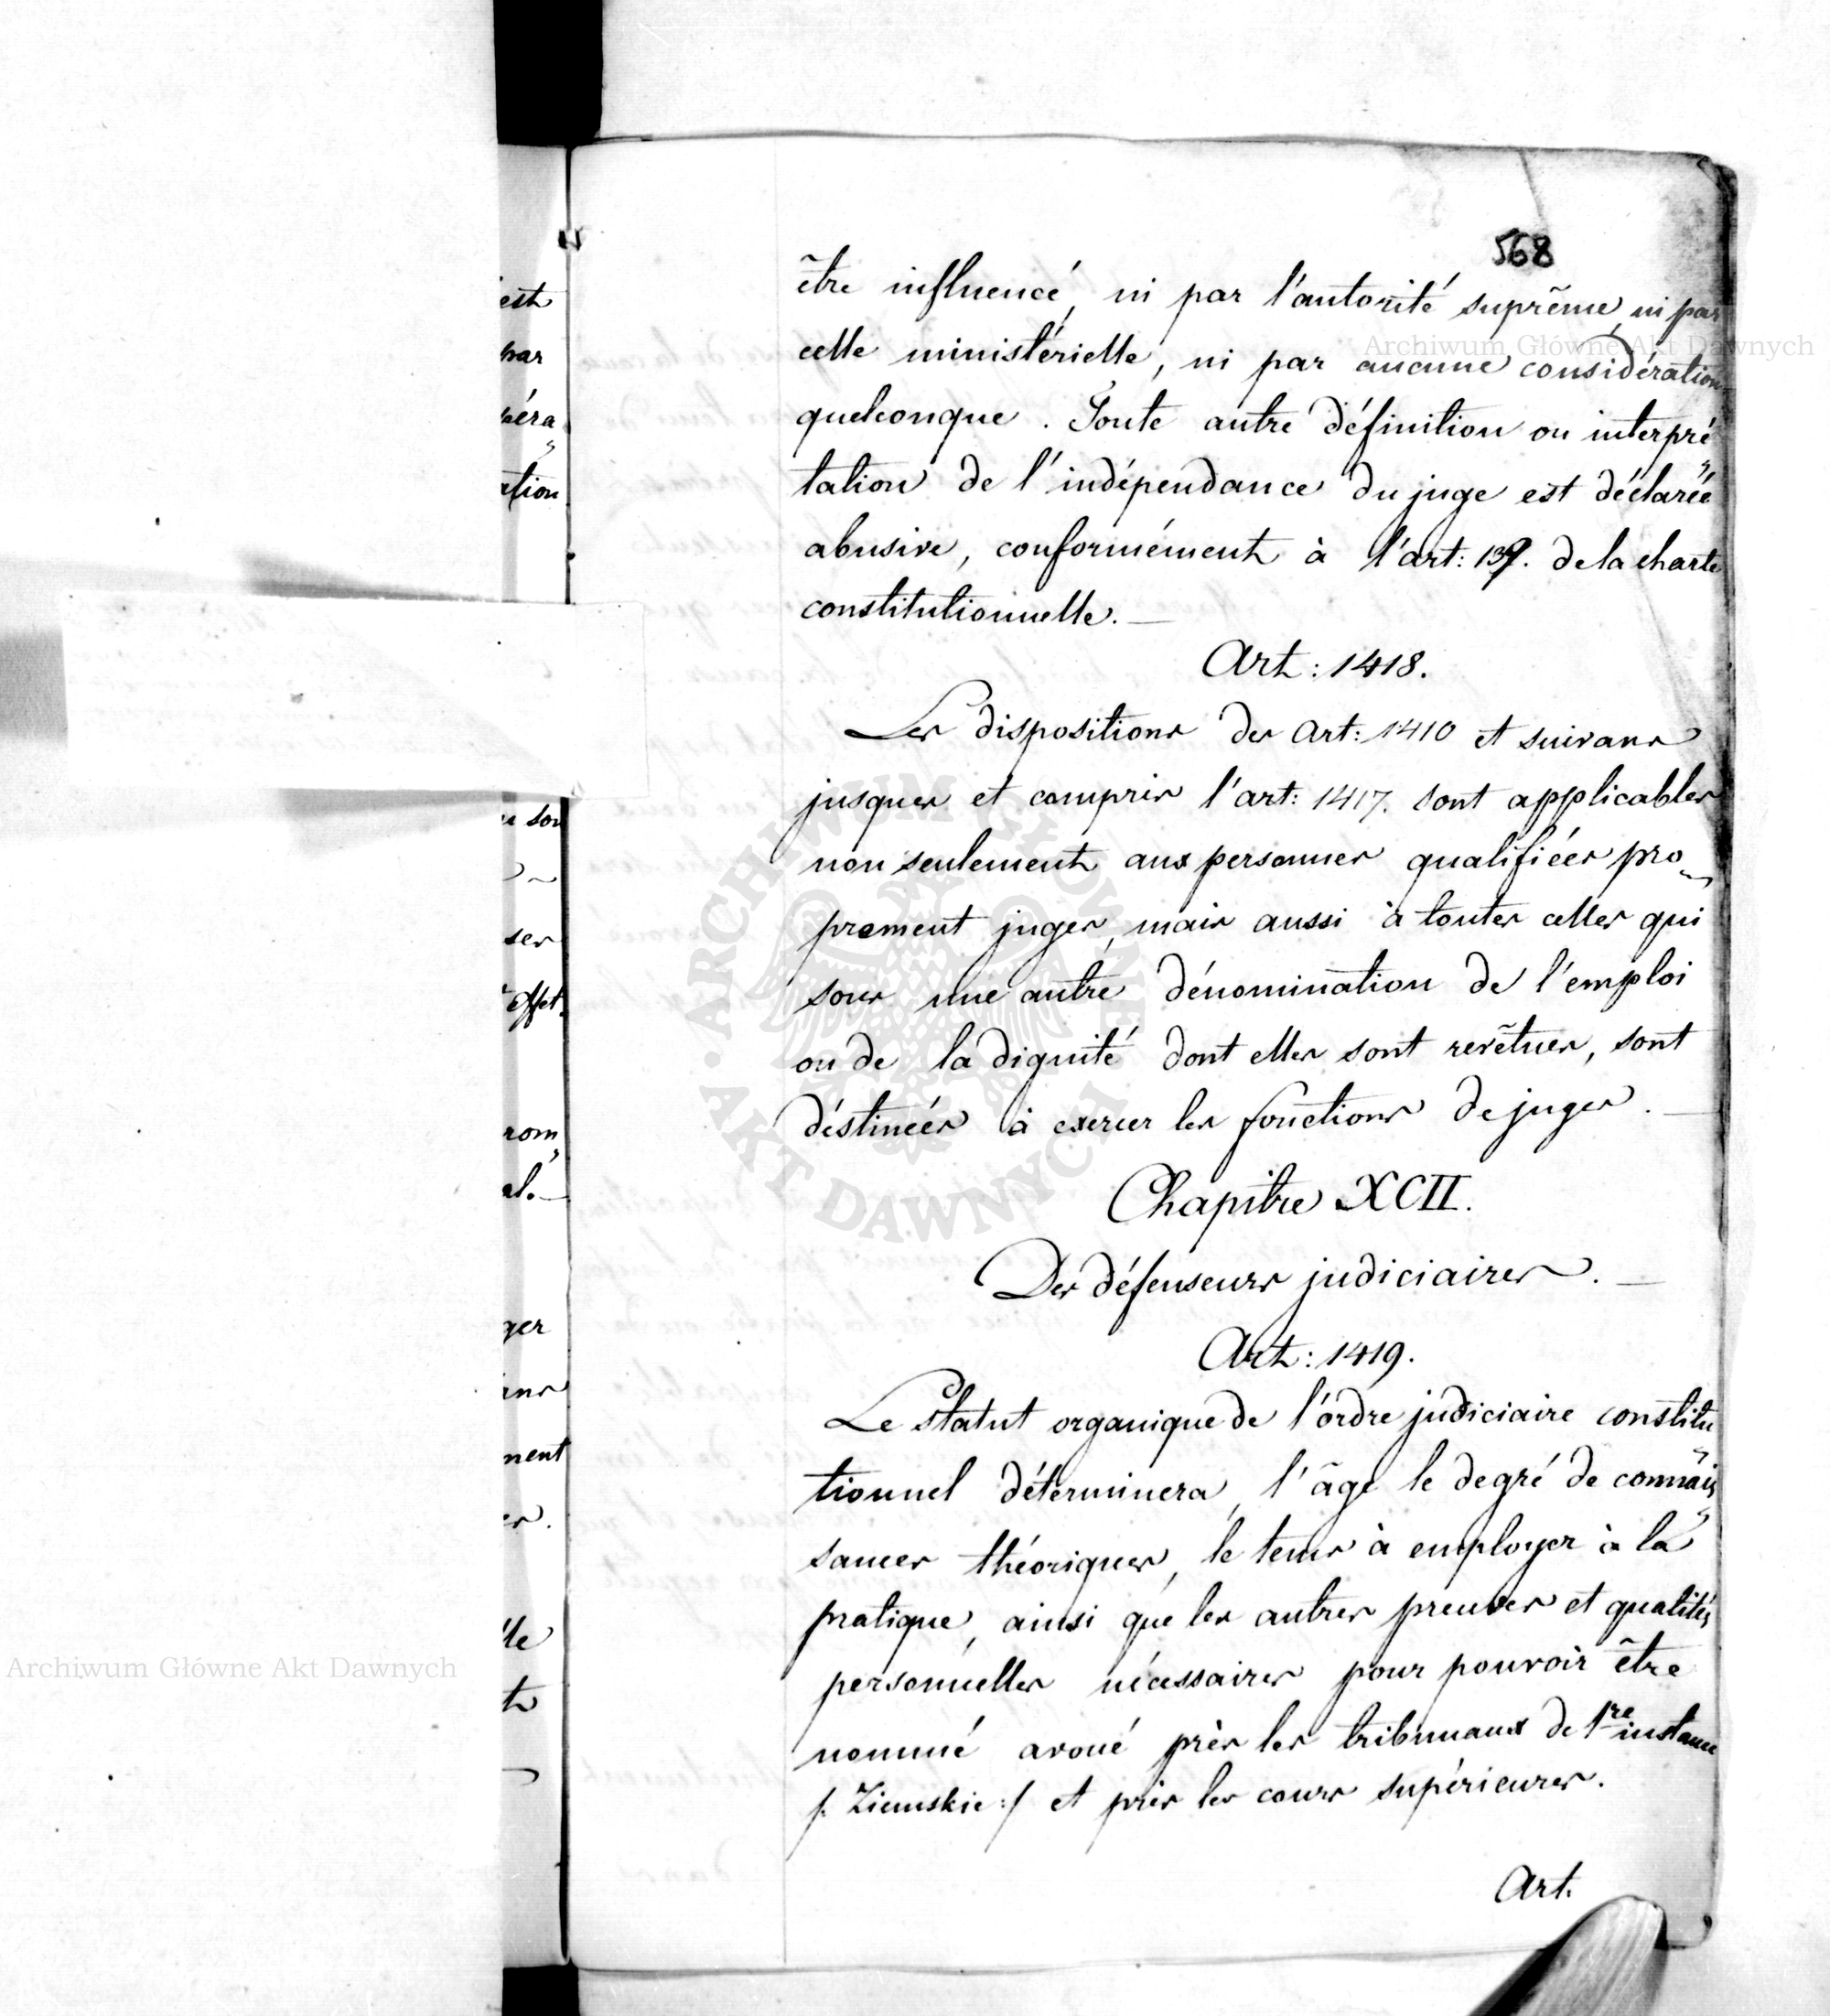 est
par
péra„
ation
568
être influencé, ni par l'autorité suprême, ni par
celle ministérielle, ni par aucune considération
quelconque. Toute autre définition ou interpré„
tation de l'indépendance du juge est déclarée
abusive, conformément à l'art: 139. de la charte
constitutionnelle. —
Art: 1418.
Les dispositions des Art: 1410 et suivans
jusques et compris l'art: 1417. sont applicables
non seulement aux personnes qualifiées pro„
prement juges, mais aussi à toutes celles qui
sous une autre dénomination de l'emploi
ou de la dignité dont elles sont revêtues, sont
déstinées à exercer les fonctions de juges. —
Chapitre XCII.
Des défenseurs judiciaires. —
Art: 1419.
Le Statut organique de l'ordre judiciaire constitu„
tionnel déterminera, l'âge le degré de connais„
sances théoriques, le tems à employer à la
pratique, ainsi que les autres preuves et qualités
personnelles nécessaires pour pouvoir être
nommé avoué près les tribunaux de 1re instance
/: Ziemskie :/ et près les cours supérieures.
Art.
son
ser
effet.
rom„
al. —
ger
ans
ment
Archiwum Główne Akt Dawnych
Archiwum Główne Akt Dawnych
ARCHIWUM GŁÓWNE AKT DAWNYCH